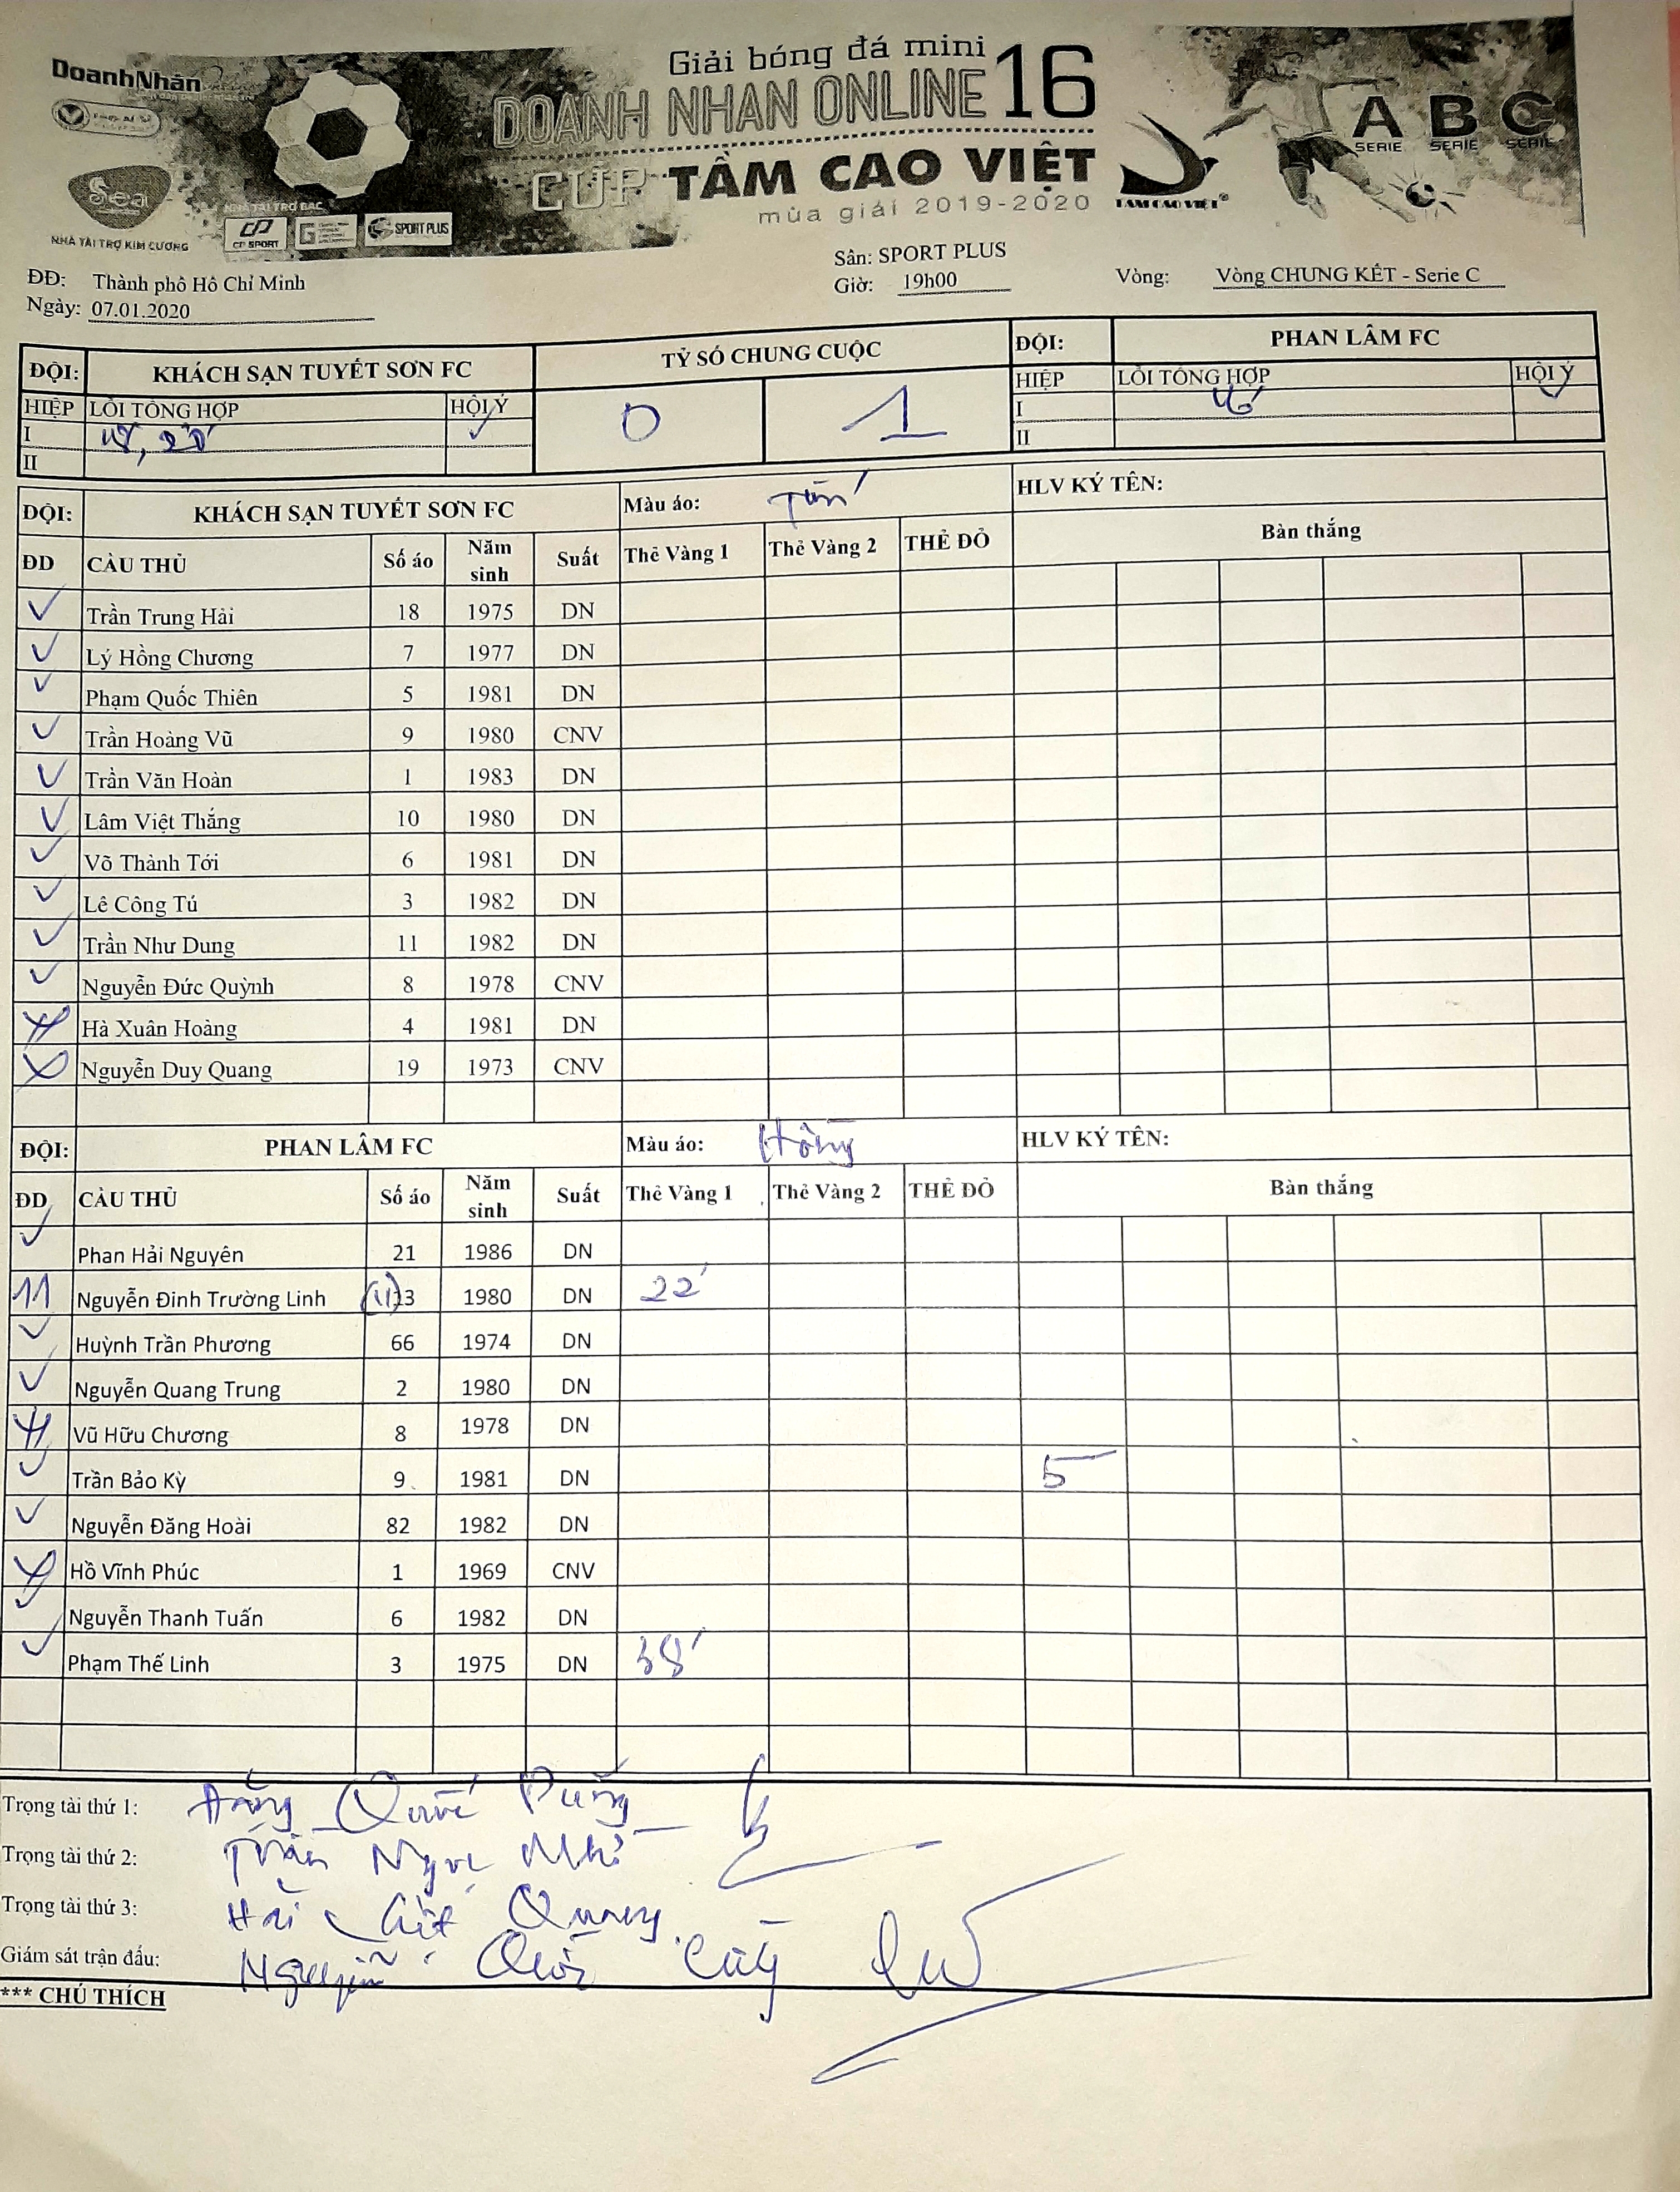 DoanhNhân
Giải bóng đá mini
DOANH NHAN ONLINE 16
CUP TẦM CAO VIỆT
mùa giải 2019-2020
TAM CAO VIET®
A B C
SERIE SERIE SERIE
Sea
NHÀ TÀI TRỢ KIM CƯƠNG
NHÀ TÀI TRỢ BẠC
CP SPORT
SPORT PLUS
ĐĐ: Thành phố Hồ Chí Minh
Sân: SPORT PLUS
Ngày: 07.01.2020
Giờ: 19h00
Vòng: Vòng CHUNG KẾT - Serie C
ĐỘI: KHÁCH SẠN TUYẾT SƠN FC TỶ SỐ CHUNG CUỘC ĐỘI: PHAN LÂM FC
HIỆP LỖI TỔNG HỢP HỘI Ý 0 1 HIỆP LỖI TỔNG HỢP HỘI Ý
I I
II II
ĐỘI: KHÁCH SẠN TUYẾT SƠN FC Màu áo: HLV KÝ TÊN:
ĐD CẦU THỦ Số áo Năm sinh Suất Thẻ Vàng 1 Thẻ Vàng 2 THẺ ĐỎ Bàn thắng
Trần Trung Hải 18 1975 DN
Lý Hồng Chương 7 1977 DN
Phạm Quốc Thiên 5 1981 DN
Trần Hoàng Vũ 9 1980 CNV
Trần Văn Hoàn 1 1983 DN
Lâm Việt Thắng 10 1980 DN
Võ Thành Tới 6 1981 DN
Lê Công Tú 3 1982 DN
Trần Như Dung 11 1982 DN
Nguyễn Đức Quỳnh 8 1978 CNV
Hà Xuân Hoàng 4 1981 DN
Nguyễn Duy Quang 19 1973 CNV
ĐỘI: PHAN LÂM FC Màu áo: Hồng HLV KÝ TÊN:
ĐD CẦU THỦ Số áo Năm sinh Suất Thẻ Vàng 1 Thẻ Vàng 2 THẺ ĐỎ Bàn thắng
Phan Hải Nguyên 21 1986 DN
11 Nguyễn Đinh Trường Linh (11) 1980 DN 22'
Huỳnh Trần Phương 66 1974 DN
Nguyễn Quang Trung 2 1980 DN
Vũ Hữu Chương 8 1978 DN
Trần Bảo Kỳ 9 1981 DN 5
Nguyễn Đăng Hoài 82 1982 DN
Hồ Vĩnh Phúc 1 1969 CNV
Nguyễn Thanh Tuấn 6 1982 DN
Phạm Thế Linh 3 1975 DN 38'
Trọng tài thứ 1: Quốc
Trọng tài thứ 2: Trần Ngọc
Trọng tài thứ 3: Quang
Giám sát trận đấu: Nguyễn
*** CHÚ THÍCH